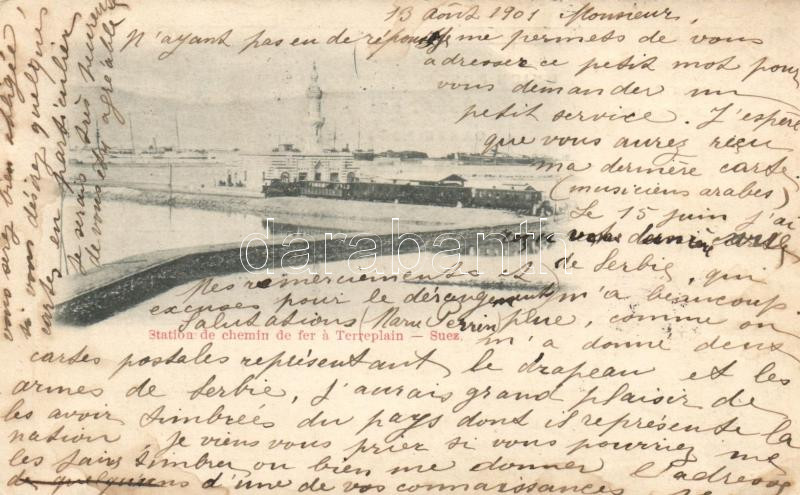 13 Août 1901 Monsieur,
N'ayant pas eu de réponse je me permets de vous
adresser ce petit mot pour
vous demander un
petit service. J'espère
que vous aurez reçu
ma dernière carte
(musiciens arabes)
Le 15 juin j'ai
reçu votre dernière carte
de Serbie, qui
m'a beaucoup
plue, comme on
m'a donné deux
cartes postales représentant le drapeau et les
armes de Serbie, j'aurais grand plaisir de
les avoir timbrées du pays dont il représente la
nation. Je viens vous prier si vous pourriez me
les faire timbrer ou bien me donner l'adresse
d'une de vos connaissances
vous serez bien obligée,
si vous désirez quelques
cartes en particulier
je serais très heureux
de vous y agréable
Mes remerciements et
excuses pour le dérangement
Salutations (Perrin)
Station de chemin de fer à Terreplain — Suez.
darabanth